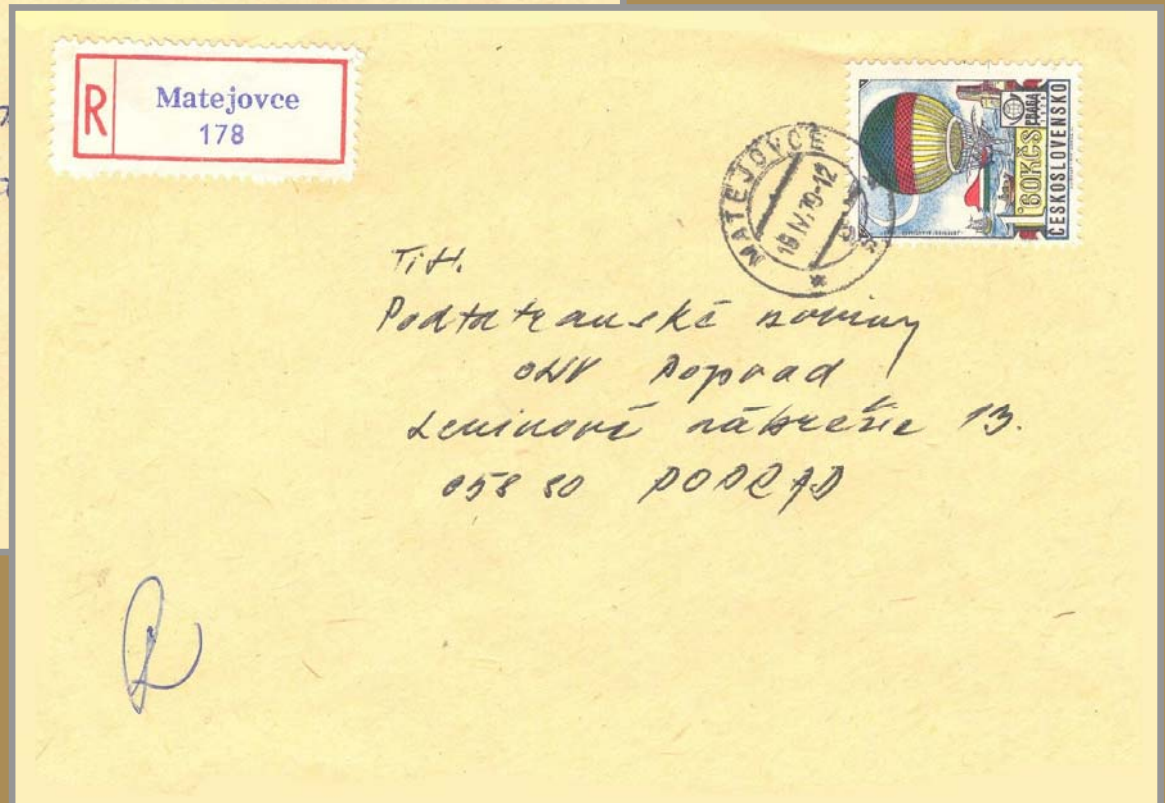 R
Matejovce
178
MATEJOVCE
18.IV.79-12
PRAGA
1.60 KČS
ČESKOSLOVENSKO
Titl.
Podtatranské noviny
ONV Poprad
Leninovo nábrežie 13.
058 80 POPRAD
R